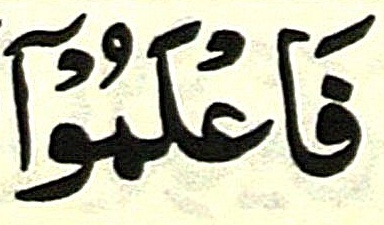 فَاعْلَمُوْۤا